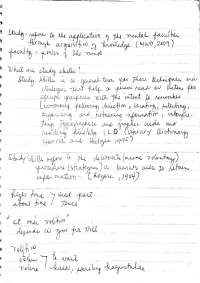 Study - refers to the application of the mental faculties
through acquisition of knowledge (MWD, 2009)
faculty - power of the mind
What are study skills?
Study skills is a general term for those techniques and
strategies that help a person read or listen for
specific purposes with the intent to remember
(commonly following direction, locating, selecting,
organizing and retaining information, interpre-
ting typographic and graphic aids and
reading flexibly (LD (Literacy Dictionary
Harris and Hodges 1995)
Study Skills refer to the deliberate (more voluntary)
procedures (strategies) a learner uses to retain
information - (Rogers, 1984)
about time / tense
"at one's volition"
depends on your free Will
volition
to wish